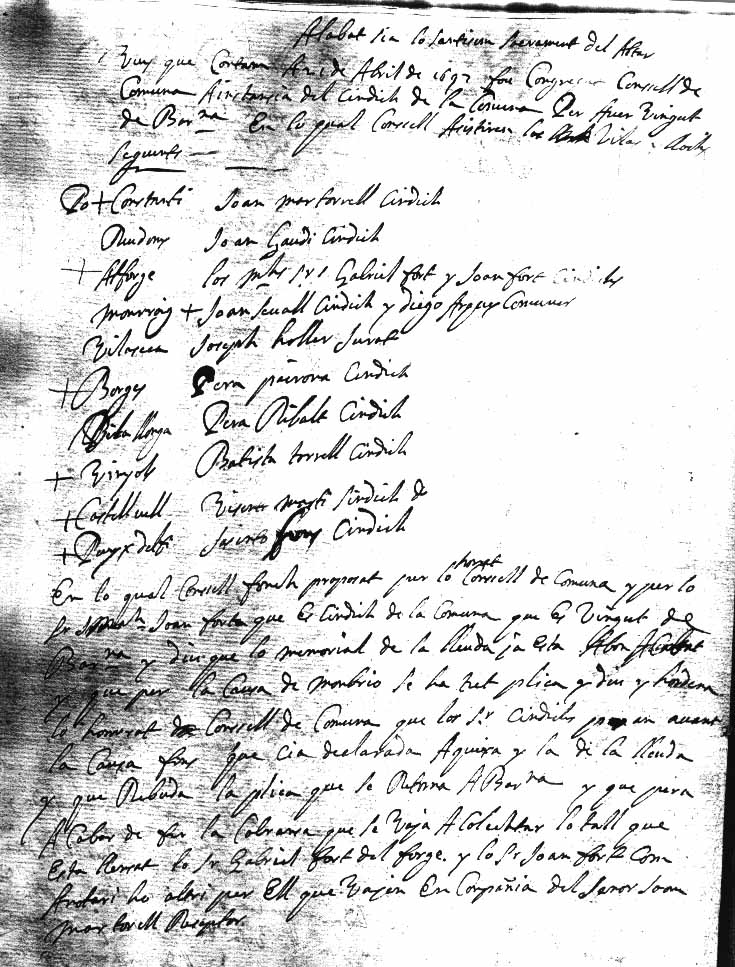 Alabat sia lo santisim sacrament del Altar
que Contam de Abril de 1697 fou Congregat Consell de
Comuna Ainstansia del Cindich de la Comuna Per Aver Vingut
de Barna En lo qual Consell Asistiren los Vilas y llochs
seguents
Po + Constanti Joan martorrell Cindich
Riudoms Joan Gaudi Cindich
+ Alforge los mhs srs Gabriel fort y Joan fort Cindichs
monrroig + Joan sevall Cindich y diego
Vilaseca Joseph holler Jurat
+ Borges Pera Cindich
Riba Pera Ribalt Cindich
+ Vinyols Batista torrell Cindich
+ Castellvell Visens Sindich
+ Cindich
En lo qual Consell fonch proposat per lo honrat Consell de Comuna y per lo
sr Joan fort que Es Cindich de la Comuna que Es Vingut de
Barna y diu que lo memorial de la lleuda ja Esta
y que per la Causa de monbrio se ha tret plica y diu y hordena
lo honrrat Consell de Comuna que los sr Cindichs avant
la Causa fins que cia declarada Aquixa y la de la lleuda
y que Rebuda la plica que se Retorna A Barna y que pera
Acabar de fer la Cobransa que se Vaja A lo tall que
Esta llensat lo sr Gabriel fort del forge y lo sr Joan fort Com
ho altri per Ell que Vajen En Compañia del senor Joan
martorell Reseptor